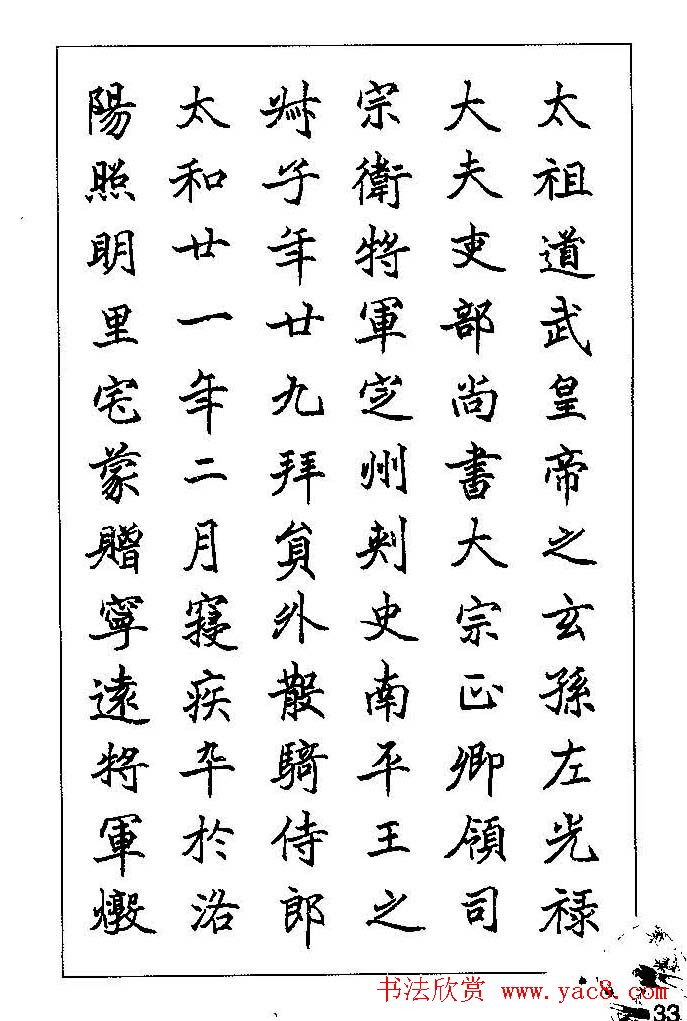 太祖道武皇帝之玄孫左光禄
大夫吏部尚書大宗正卿領司
宗衛將軍定州刺史南平王之
弟子年廿九拜員外散騎侍郎
太和廿一年二月寝疾卒於洛
陽照明里宅蒙贈寧遠將軍燉
书法欣赏 www.yac8.com
33